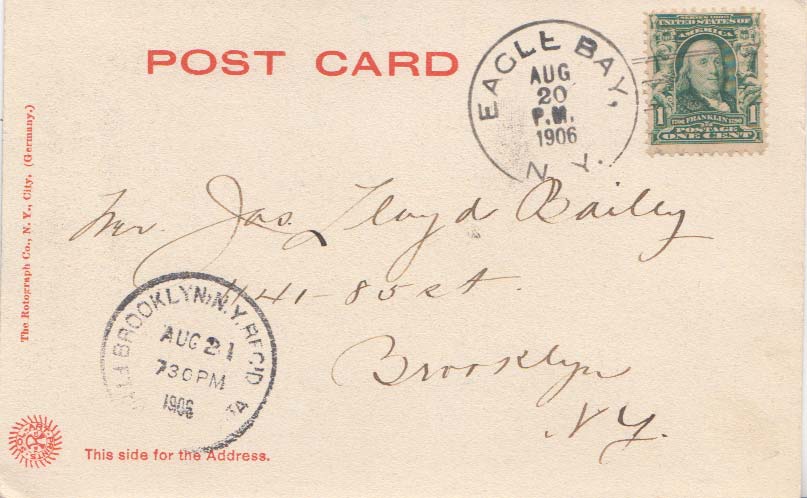 POST CARD
EAGLE BAY,
AUG
20
P.M.
1906
N. Y.
SERIES 1902
UNITED STATES OF
AMERICA
1706 FRANKLIN 1790
POSTAGE
1 ONE CENT 1
The Rotograph Co., N. Y., City, (Germany.)
Mr. Jas. Lloyd Bailey
85 st.
Brooklyn
NY.
BROOKLYN, N.Y. REC'D
AUG 21
730PM
1906
This side for the Address.